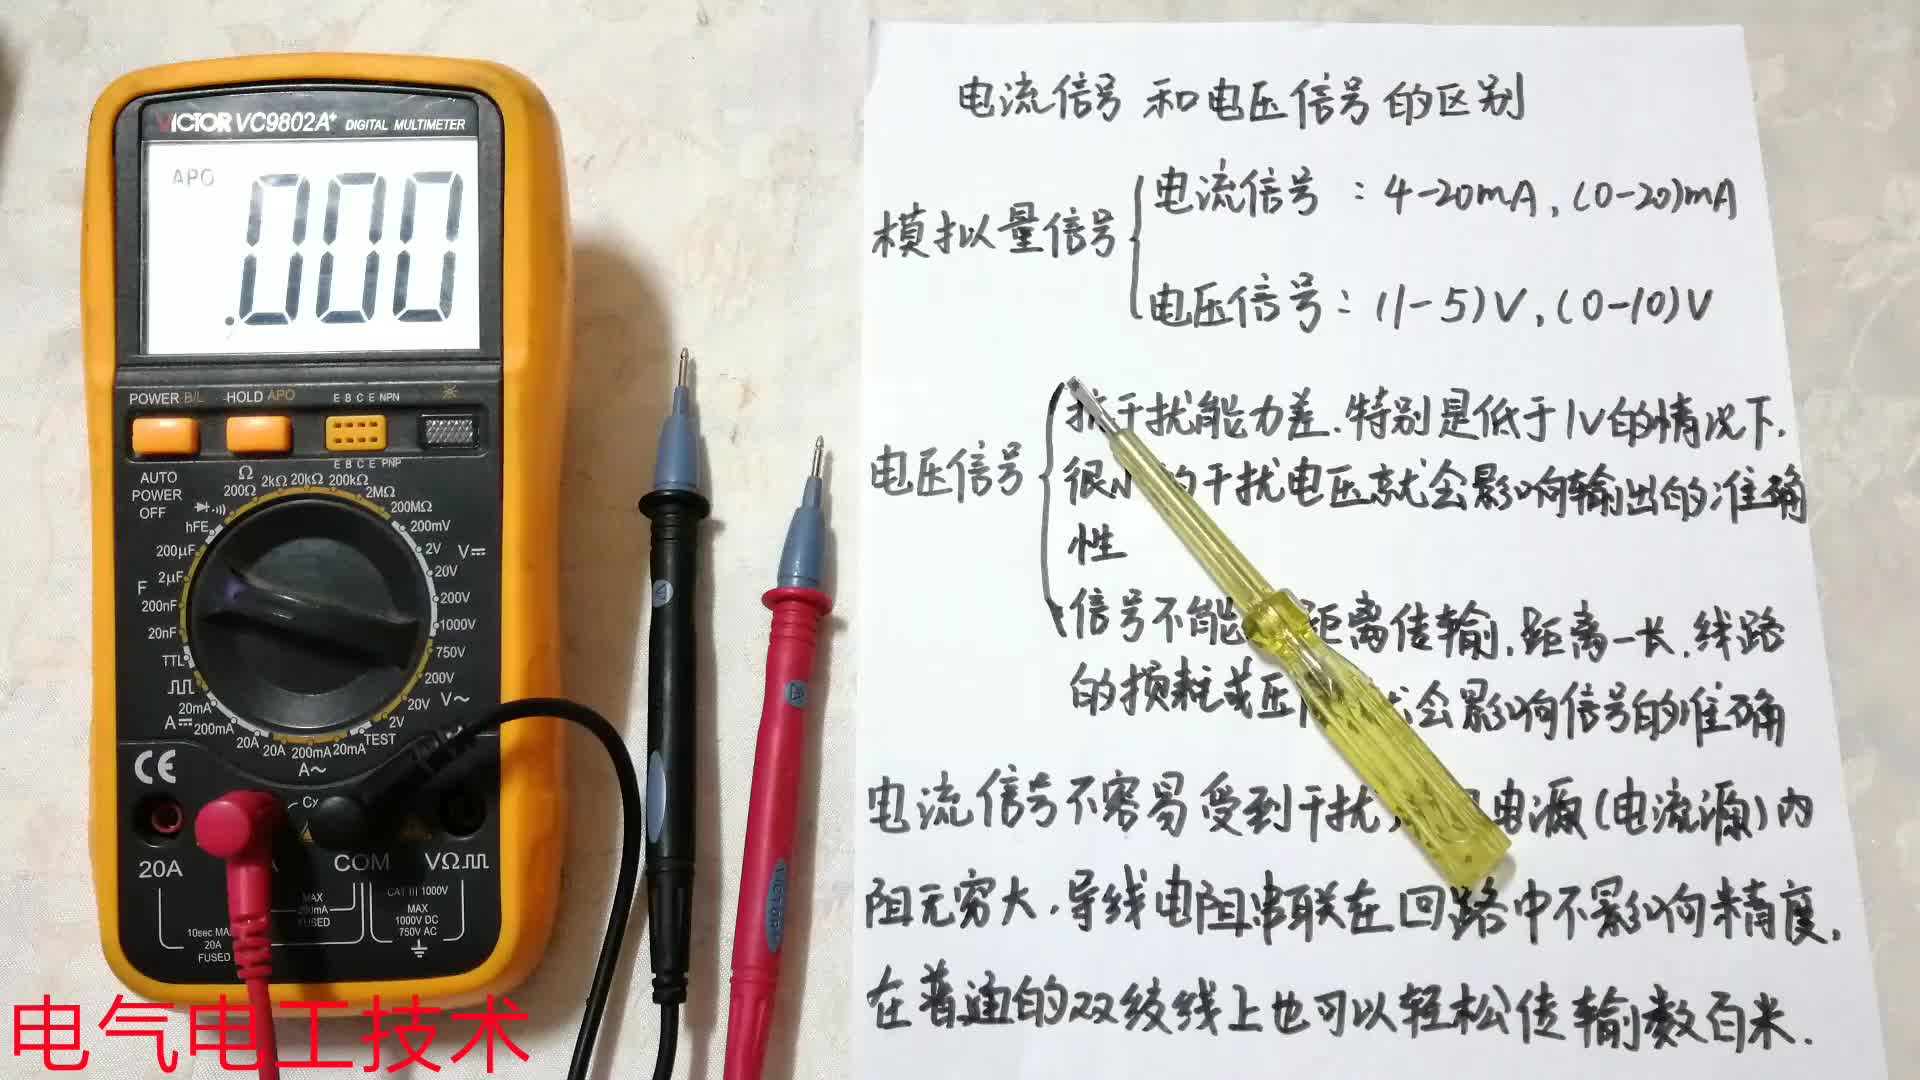 VICTOR VC9802A+ DIGITAL MULTIMETER
APO
.000
POWER B/L
HOLD APO
E B C E NPN
E B C E PNP
AUTO
POWER
OFF
Ω
200Ω
2kΩ
20kΩ
200kΩ
2MΩ
200MΩ
hFE
200mV
200μF
2V
V
F
2μF
20V
200nF
200V
20nF
1000V
TTL
750V
200V
20mA
20V
V~
A
200mA
2V
20A
20A
200mA
20mA
TEST
A~
CE
Cx
20A
A
COM
VΩ
MAX
200mA
FUSED
CAT III 1000V
MAX
1000V DC
750V AC
10sec MA
20A
FUSED
VICTOR
电气电工技术
电流信号和电压信号的区别
模拟量信号
电流信号：4-20mA,(0-20)mA
电压信号：(1-5)V,(0-10)V
电压信号
抗干扰能力差.特别是低于1V的情况下,
很小的干扰电压就会影响输出的准确
性
信号不能 距离传输,距离一长.线路
的损耗或压 会影响信号的准确
电流信号不容易受到干扰, 电源(电流源)内
阻无穷大,导线电阻串联在回路中不影响精度,
在普通的双绞线上也可以轻松传输数百米.